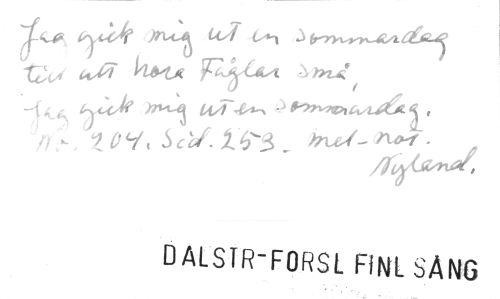 Jag gick mig ut en sommardag
till att höra Fåglar små,
Jag gick mig ut en sommardag.
No. 204. Sid. 253. mel-not.
Nyland.
DALSTR-FORSL FINL SÅNG